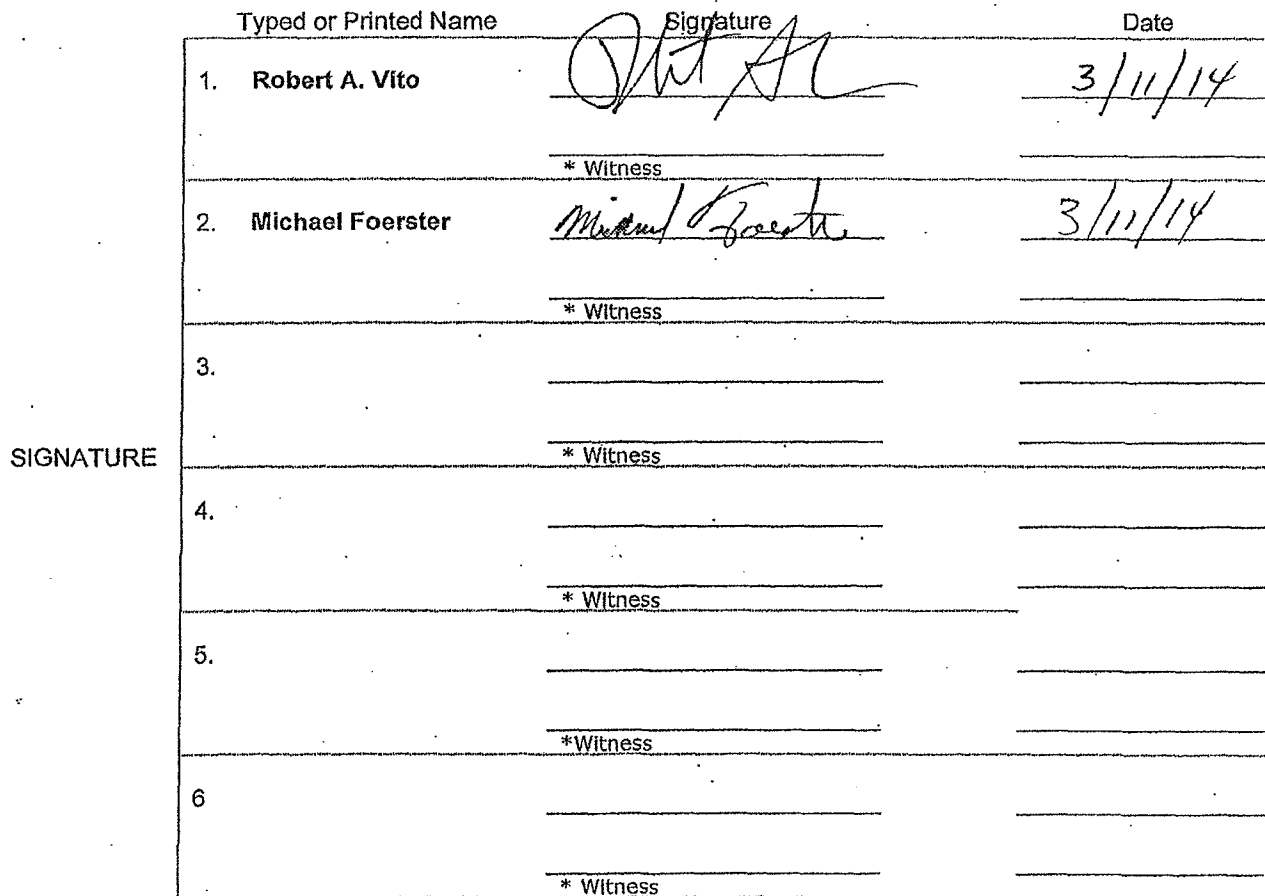 Typed or Printed Name Signature Date
1. Robert A. Vito 3/11/14
* Witness
2. Michael Foerster Michael Foerster 3/11/14
* Witness
3.
* Witness
SIGNATURE
4.
* Witness
5.
*Witness
6
* Witness